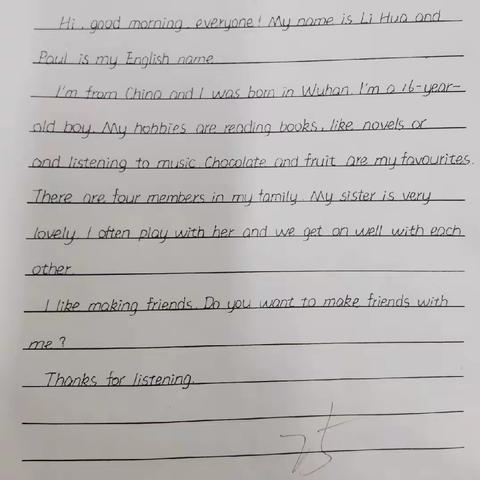 Hi, good morning, everyone! My name is Li Hua and
Paul is my English name.
I'm from China and I was born in Wuhan. I'm a 16-year-
old boy. My hobbies are reading books, like novels or
and listening to music. Chocolate and fruit are my favourites.
There are four members in my family. My sister is very
lovely. I often play with her and we get on well with each
other.
I like making friends. Do you want to make friends with
me?
Thanks for listening.